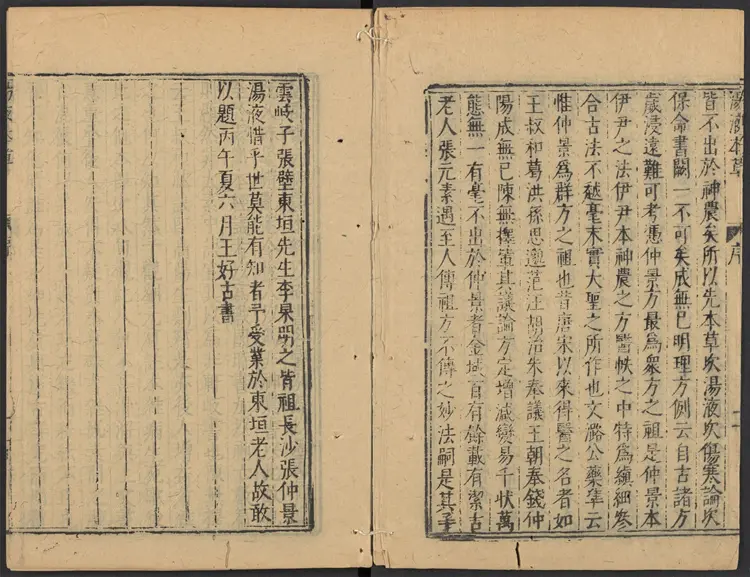 湯液本草 序
皆不出於神農矣所以先本草次湯液次傷寒論次
保命書闕一不可矣成無已明理方例云自古諸方
歲浸遠難可考憑仲景方最爲衆方之祖是仲景本
伊尹之法伊尹本神農之方醫帙之中特爲縝細叅
合古法不越毫末實大聖之所作也文潞公藥凖云
惟仲景爲群方之祖也昔唐宋以來得醫之名者如
王叔和葛洪孫思邈范汪胡洽朱奉議王朝奉錢仲
陽成無已陳無擇輩其議論方定增減變易千状萬
態無一有毫不出於仲景者金域百有餘載有潔古
老人張元素遇至人傳祖方不傳之妙法嗣是其子
雲岐子張壁東垣先生李杲明之皆祖長沙張仲景
湯液惜乎世莫能有知者予受業於東垣老人故敢
以題丙午夏六月王好古書